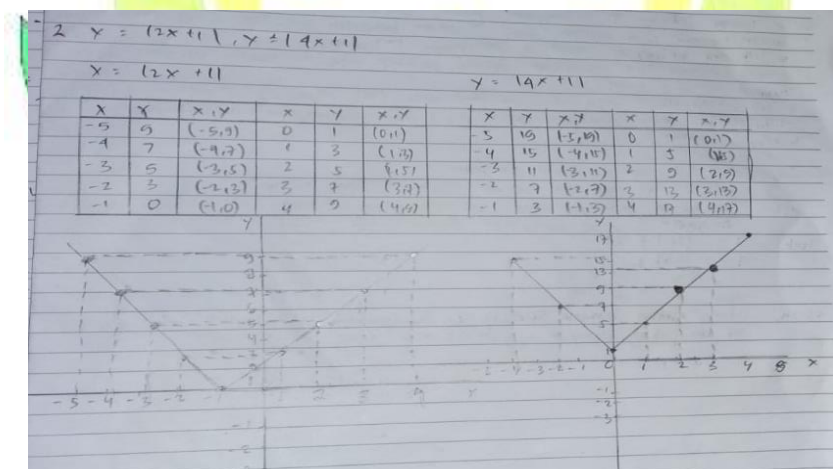 2 y = |2x+1|, y = |4x+1|
y = |2x +1|
y = |4x+1|
x y x,y x y x,y
-5 9 (-5,9) 0 1 (0,1)
-4 7 (-4,7) 1 3 (1,3)
-3 5 (-3,5) 2 5
-2 3 (-2,3) 3 7 (3,7)
-1 0 (-1,0) 4 9 (4,9)
x y x,y x y x,y
-5 19 (-5,19) 0 1 (0,1)
-4 15 (-4,15) 1 5
-3 11 (-3,11) 2 9 (2,9)
-2 7 (-2,7) 3 13 (3,13)
-1 3 (-1,3) 4 17 (4,17)
y
9
8
6
5
4
-5 -4 -3 -2 -1 2
-1
-2
y
17
15
13
9
7
5
1
-4 -3 -2 -1 0 1 2 3 4 5 x
-1
-2
-3